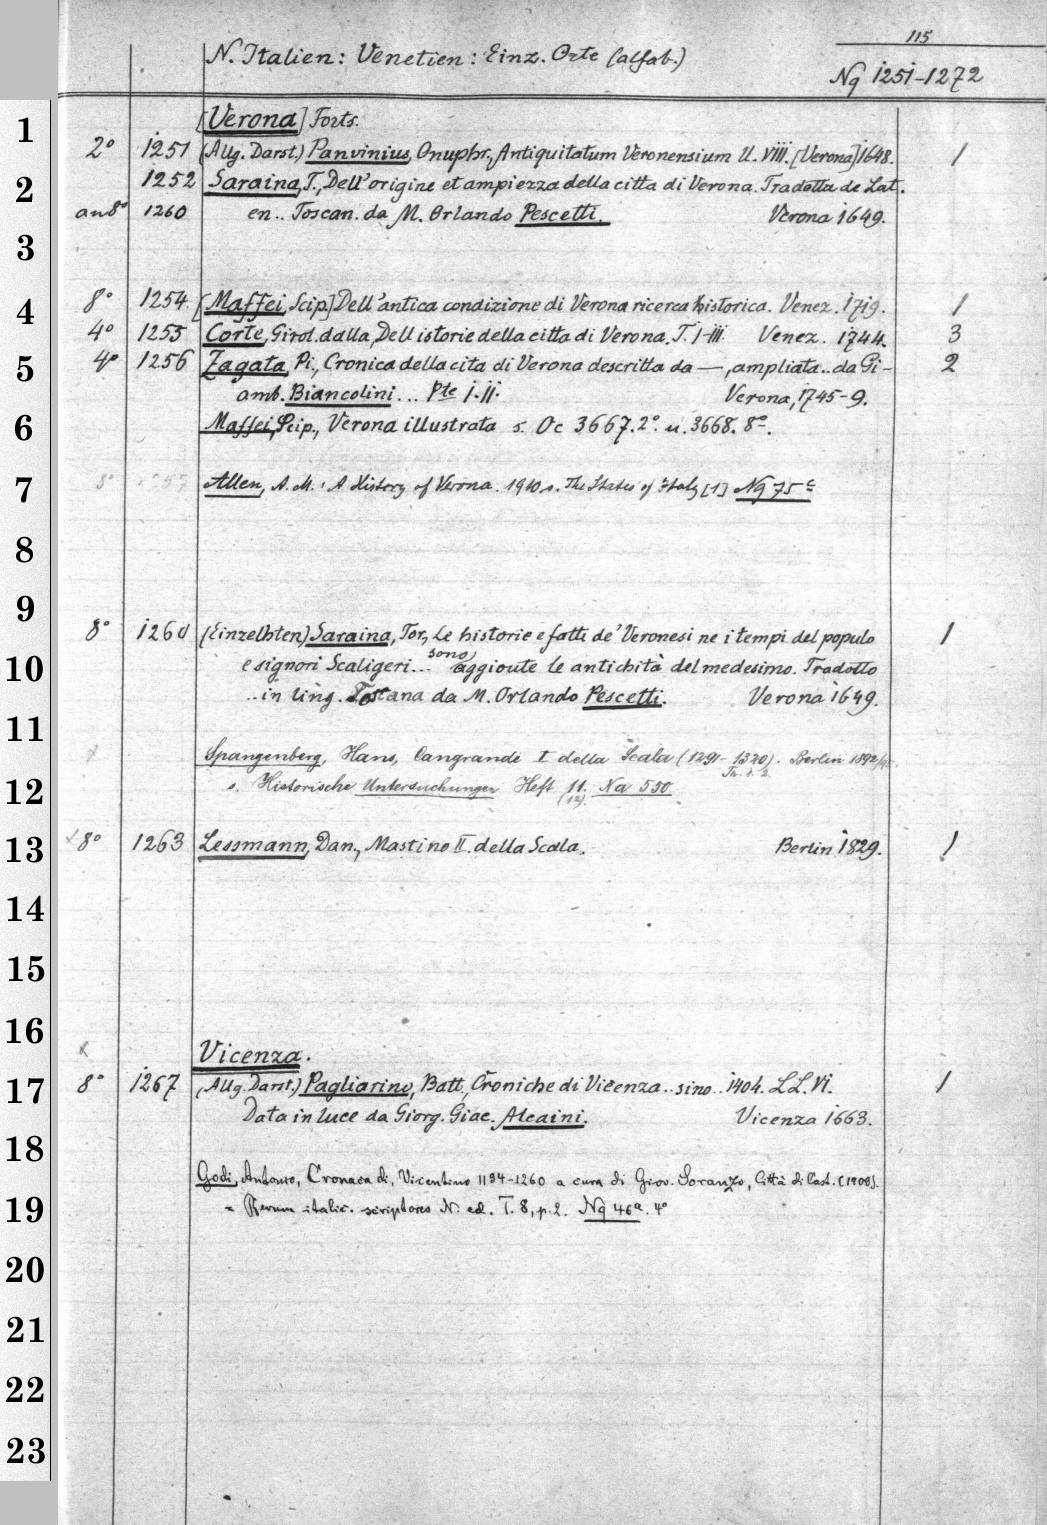 115
N. Italien: Venetien: Einz. Orte (alfab.)
Nq 1251-1272
1
[Verona] Forts.
2° 1251 (Allg. Darst.) Panvinius, Onuphr., Antiquitatum Veronensium ll. VIII. [Verona] 1648. 1
2
1252 Saraina, T., Dell'origine et ampiezza della citta di Verona. Tradotta de Lat.
an 8° 1260 en.. Toscan. da M. Orlando Pescetti. Verona 1649.
3
4
8° 1254 [Maffei, Scip.] Dell'antica condizione di Verona ricerca historica. Venez. 1719. 1
4° 1255 Corte, Girol. dalla, Dell istorie della citta di Verona. T. I-III. Venez. 1744. 3
5
4° 1256 Zagata, Pi., Cronica della cita di Verona descritta da —, ampliata.. da Gi- 2
amb. Biancolini... Pte I. II. Verona, 1745-9.
6
Maffei, Scip., Verona illustrata s. Oc 3667. 2°. u. 3668. 8°.
7
8° Allen, A. M.: A History of Verona. 1910 s. The States of Italy [1] Nq 75c
8
9
8° 1260 (Einzelhten) Saraina, Tor., Le historie e fatti de' Veronesi ne i tempi del populo 1
10
e signori Scaligeri... sono aggioute le antichità del medesimo. Tradotto
.. in ling. Toscana da M. Orlando Pescetti. Verona 1649.
11
Spangenberg, Hans, Cangrande I della Scala (1291-1320). Berlin 1892/
Th. 1. 2.
12
s. Historische Untersuchungen Heft 11. Na 550
(12).
13
8° 1263 Lessmann, Dan., Mastino II. della Scala. Berlin 1829. 1
14
15
16
Vicenza.
17
8° 1267 (Allg. Darst.) Pagliarino, Batt., Croniche di Vicenza.. sino.. 1404. LL. VI. 1
Data in luce da Giorg. Giac. Alcaini. Vicenza 1663.
18
Godi, Antonio, Cronaca di, Vicentino 1194-1260 a cura di Giov. Soranzo, Città di Cast. (1908).
19
= Rerum italic. scriptores N. ed. T. 8, p. 2. Nq 46a. 4°
20
21
22
23